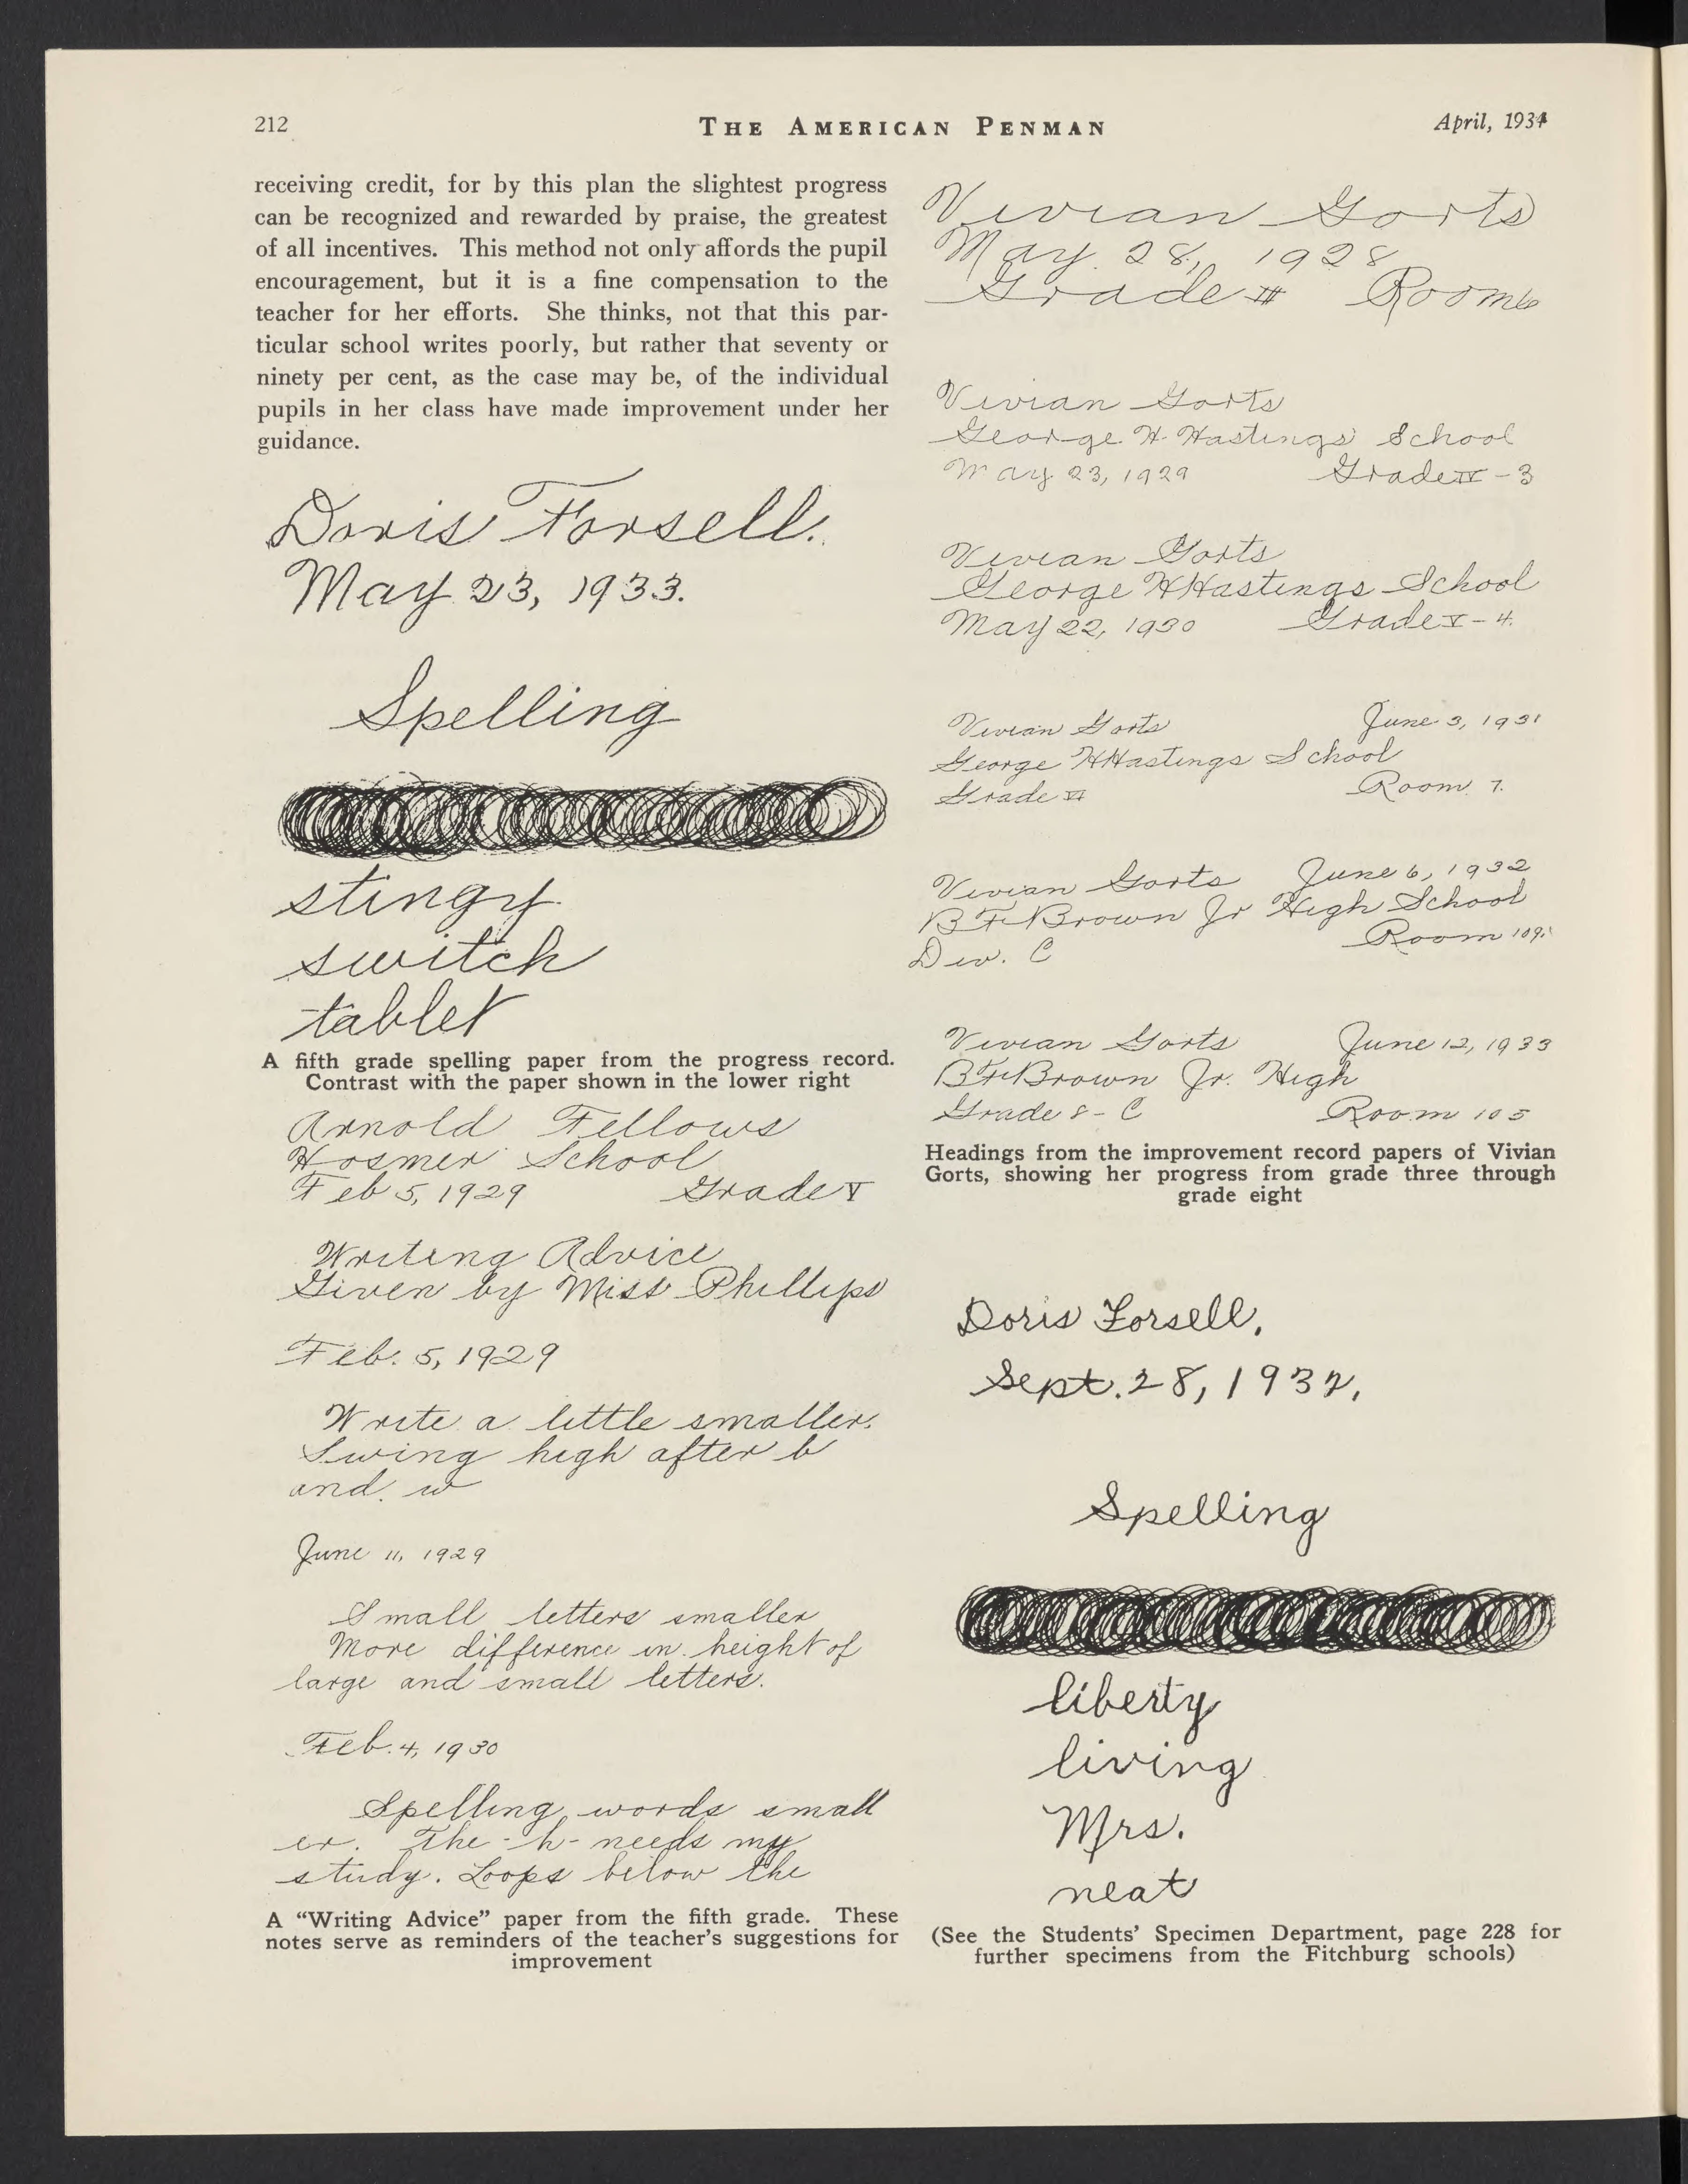 212
THE AMERICAN PENMAN
April, 1934
receiving credit, for by this plan the slightest progress
can be recognized and rewarded by praise, the greatest
of all incentives. This method not only affords the pupil
encouragement, but it is a fine compensation to the
teacher for her efforts. She thinks, not that this par-
ticular school writes poorly, but rather that seventy or
ninety per cent, as the case may be, of the individual
pupils in her class have made improvement under her
guidance.
Doris Forsell.
May 23, 1933.
Spelling
stingy
switch
tablet
A fifth grade spelling paper from the progress record.
Contrast with the paper shown in the lower right
Arnold Fellows
Hosmer School
Feb 5, 1929 Grade V
Writing Advice
Given by Miss Phillips
Feb. 5, 1929
Write a little smaller.
Swing high after b
and w
June 11, 1929
Small letters smaller
More difference in height of
large and small letters.
Feb. 4, 1930
Spelling words small
er. The -h- needs my
study. Loops below the
A “Writing Advice” paper from the fifth grade. These
notes serve as reminders of the teacher's suggestions for
improvement
Vivian Gorts
May 28, 1928
Grade III Room 6
Vivian Gorts
George H. Hastings School
May 23, 1929 Grade IV - 3
Vivian Gorts
George H Hastings School
May 22, 1930 Grade V - 4.
Vivian Gorts June 3, 1931
George H Hastings School
Grade VI Room 7.
Vivian Gorts June 6, 1932
B F Brown Jr High School
Room 109.
Div. C
Vivian Gorts June 12, 1933
B F Brown Jr. High
Grade 8 - C Room 105
Headings from the improvement record papers of Vivian
Gorts, showing her progress from grade three through
grade eight
Doris Forsell,
Sept. 28, 1932,
Spelling
liberty
living
Mrs.
neat
(See the Students' Specimen Department, page 228 for
further specimens from the Fitchburg schools)